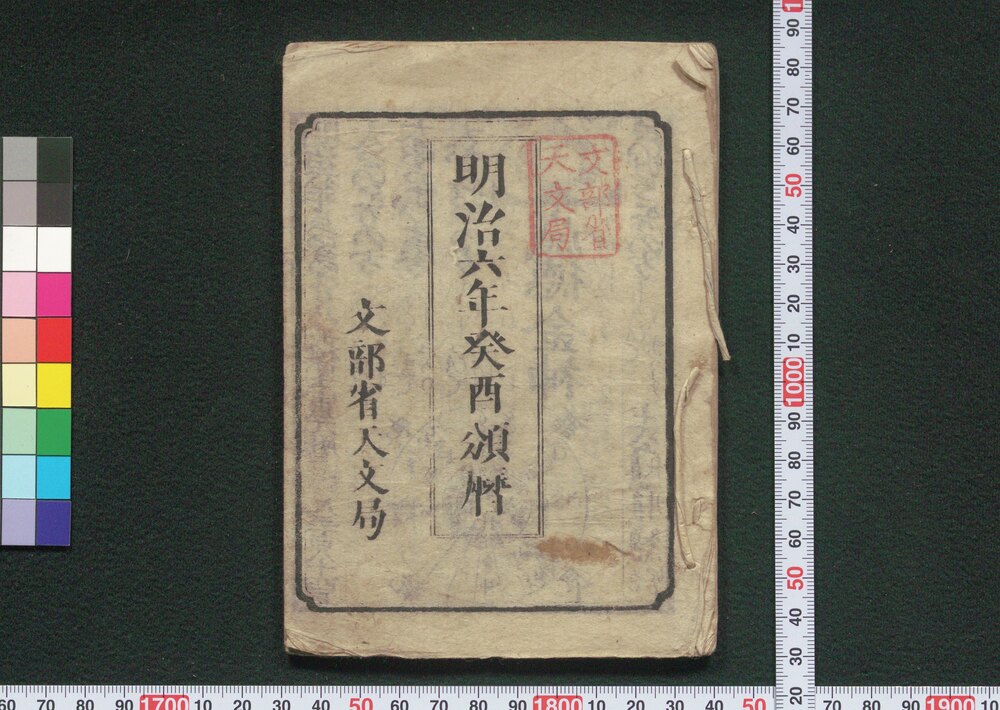 文部省
天文局
明治六年癸酉頒暦
文部省天文局
90
80
70
60
50
40
30
20
10
1000
90
80
70
60
50
40
30
20
60 70 80 90 1700 10 20 30 40 50 60 70 80 90 1800 10 20 30 40 50 60 70 80 90 1900 10